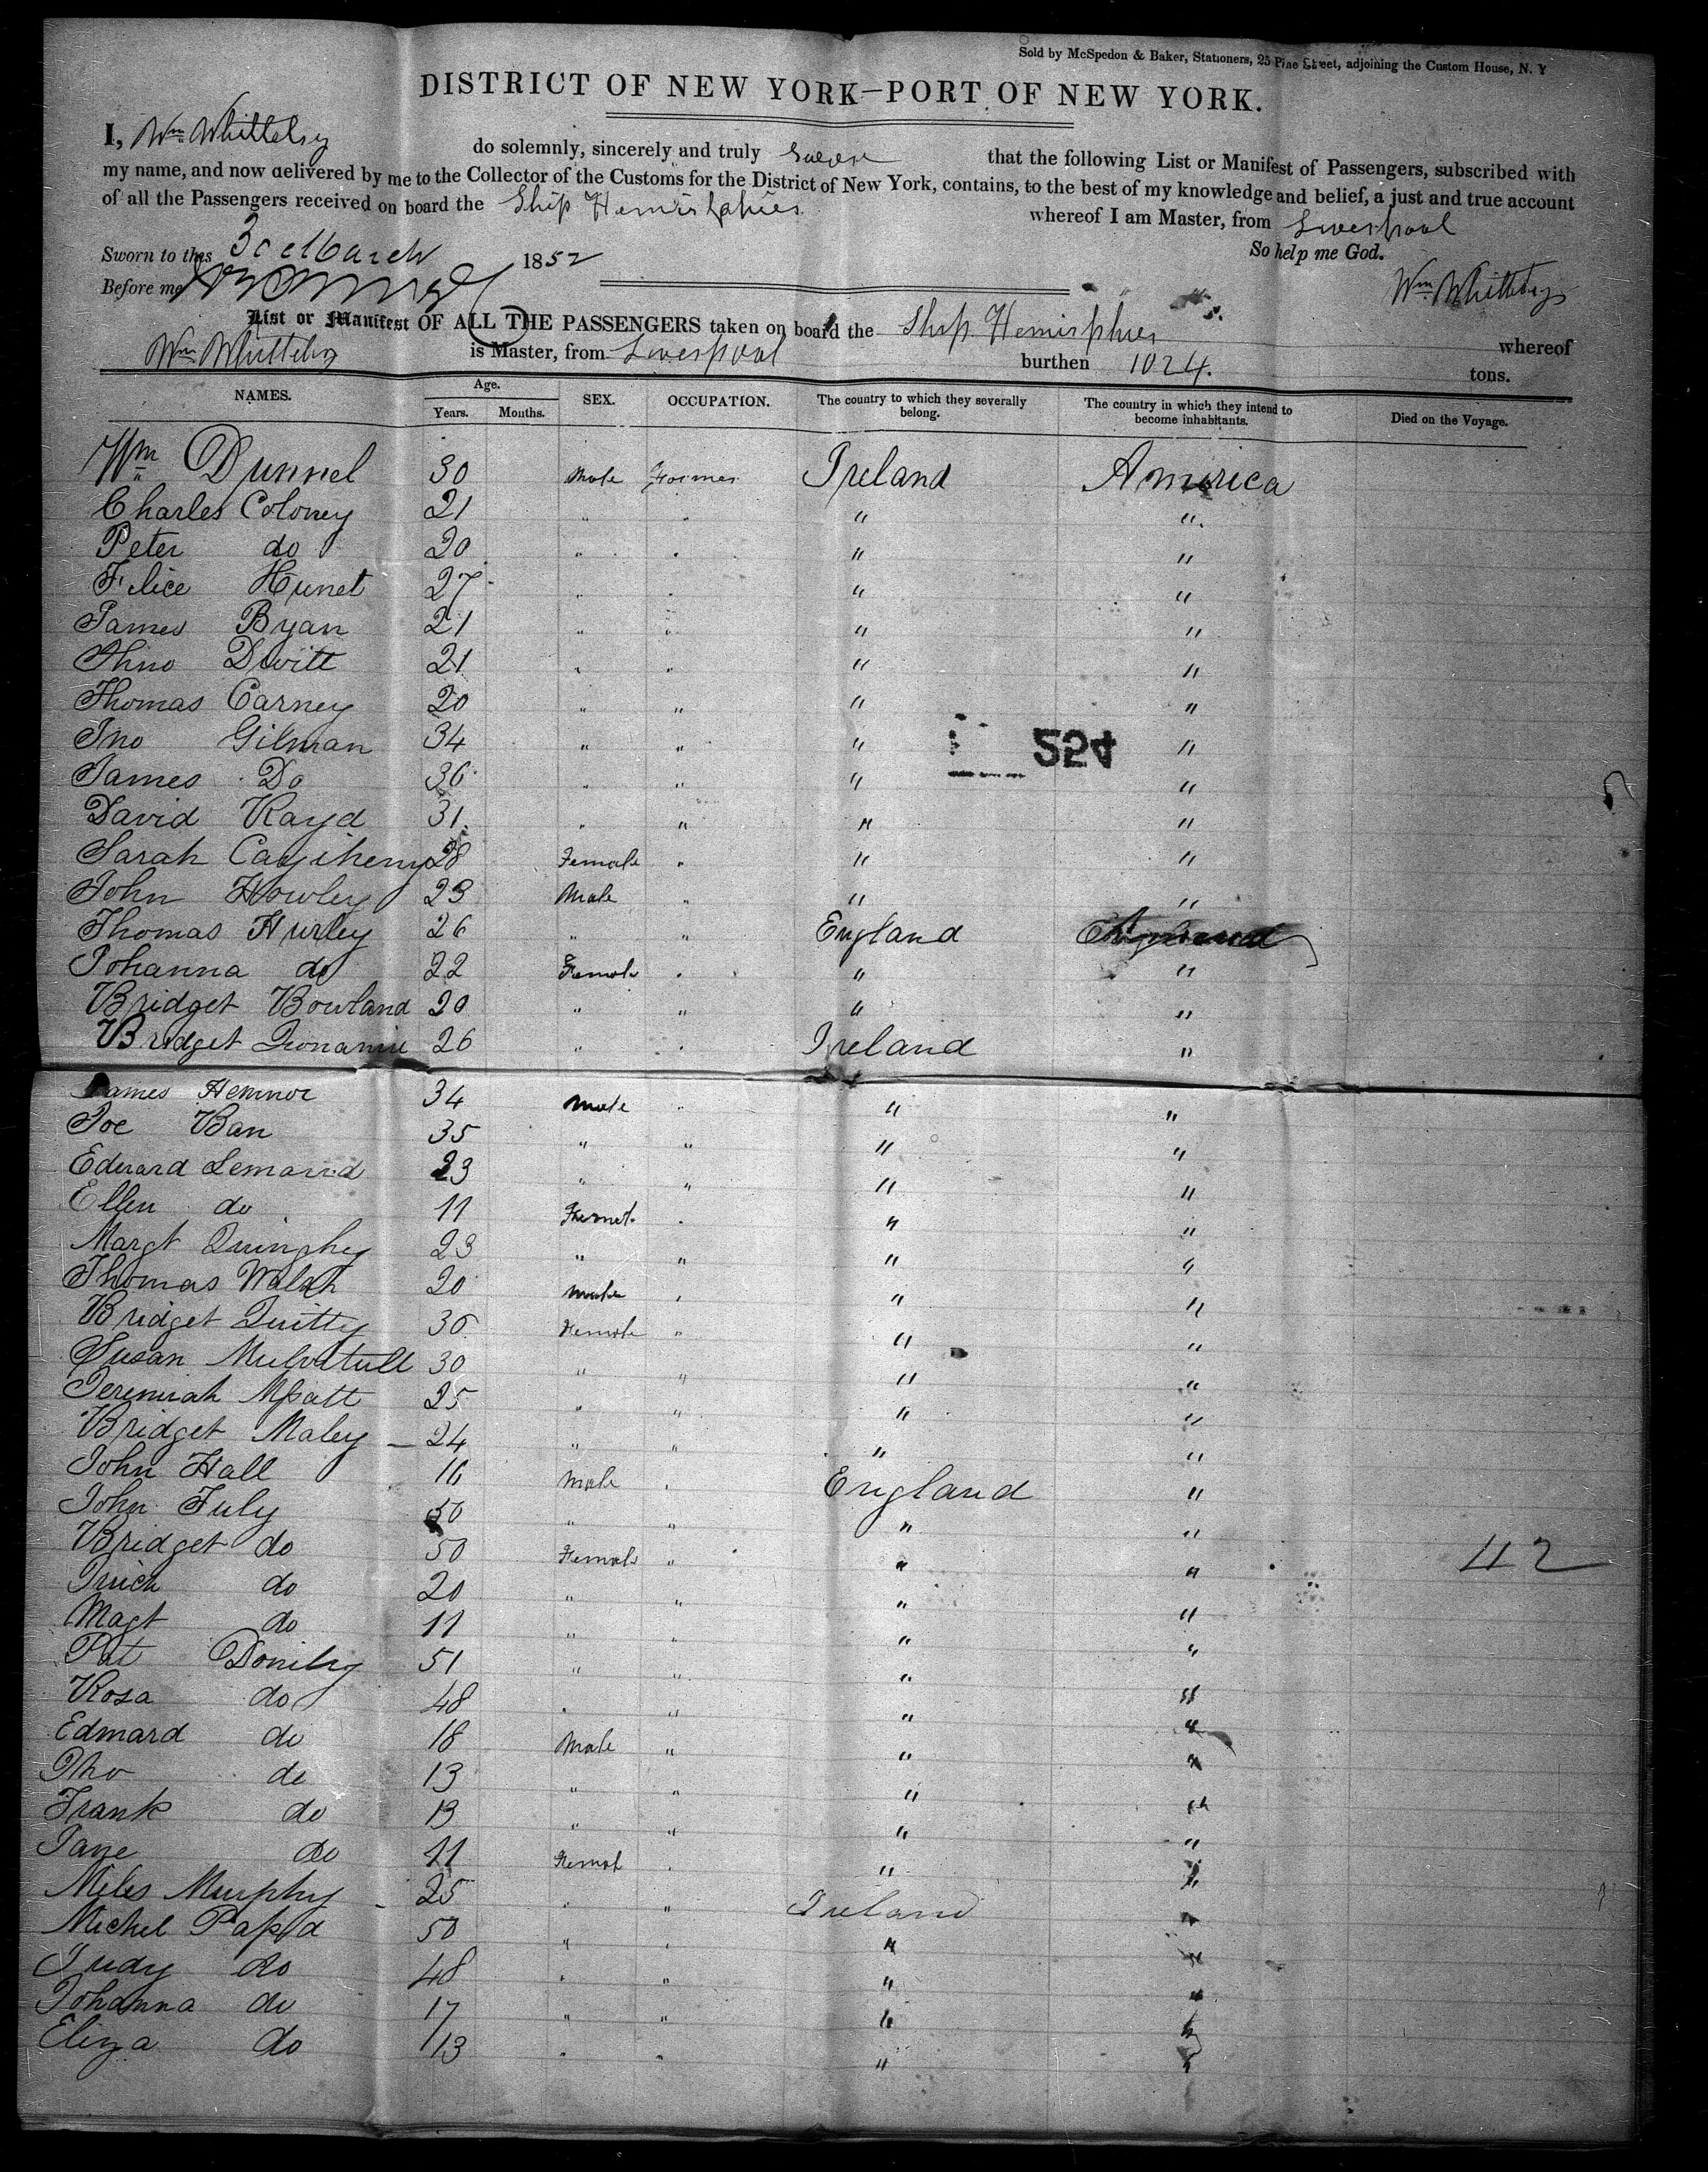 Sold by McSpedon & Baker, Stationers, 25 Pine Street, adjoining the Custom House, N. Y
DISTRICT OF NEW YORK—PORT OF NEW YORK.
I, Wm Whittelsy do solemnly, sincerely and truly swear that the following List or Manifest of Passengers, subscribed with
my name, and now delivered by me to the Collector of the Customs for the District of New York, contains, to the best of my knowledge and belief, a just and true account
of all the Passengers received on board the Ship Hemisphies whereof I am Master, from Liverpool
Sworn to this 30 March 1852 So help me God.
Before me Wm Whittelsy
List or Manifest OF ALL THE PASSENGERS taken on board the Ship Hemisphies whereof
Wm Whittelsy is Master, from Liverpool burthen 1024. tons.
NAMES. Age. Years. Months. SEX. OCCUPATION. The country to which they severally belong. The country in which they intend to become inhabitants. Died on the Voyage.
Wm Dunnel 30 Male Farmer Ireland America
Charles Coloney 21 " " " "
Peter do 20 " " " "
Felice Hunet 27 " " " "
James Byan 21 " " " "
Dwitt 21 " " " "
Thomas Carney 20 " " " "
Jno Gilman 34 " " " "
254
James Do 36 " " " "
David Kayd 31 " " " "
Sarah 28 Female " " "
John Howley 23 Male " " "
Thomas Hurley 26 " " England
Johanna do 22 Female " " "
Bridget Bowland 20 " " " "
Bridget 26 " " Ireland "
James Hemnor 34 Male " " "
Joe Ban 35 " " " "
Edward Lemarrd 23 " " " "
Ellen do 11 Femal " " "
Margt Quinghy 23 " " " "
Thomas Walsh 20 Male " " "
Bridget Quitty 30 Female " " "
Susan 30 " " " "
Jeremiah 25 " " " "
Bridget Maley 24 " " " "
John Hall 16 Male " England "
John July 50 " " " "
Bridget do 50 Female " " " 42
do 20 " " " "
Magt do 11 " " " "
Pat Donilly 51 " " " "
Rosa do 48 " " " "
Edward do 18 Male " " "
Tho do 13 " " " "
Frank do 13 " " " "
Jane do 11 Femal " " "
Miles Murphy 25 " " Ireland "
Michel Papd 50 " " " "
Judy do 48 " " " "
Johanna do 17 " " " "
Eliza do 13 " " " "